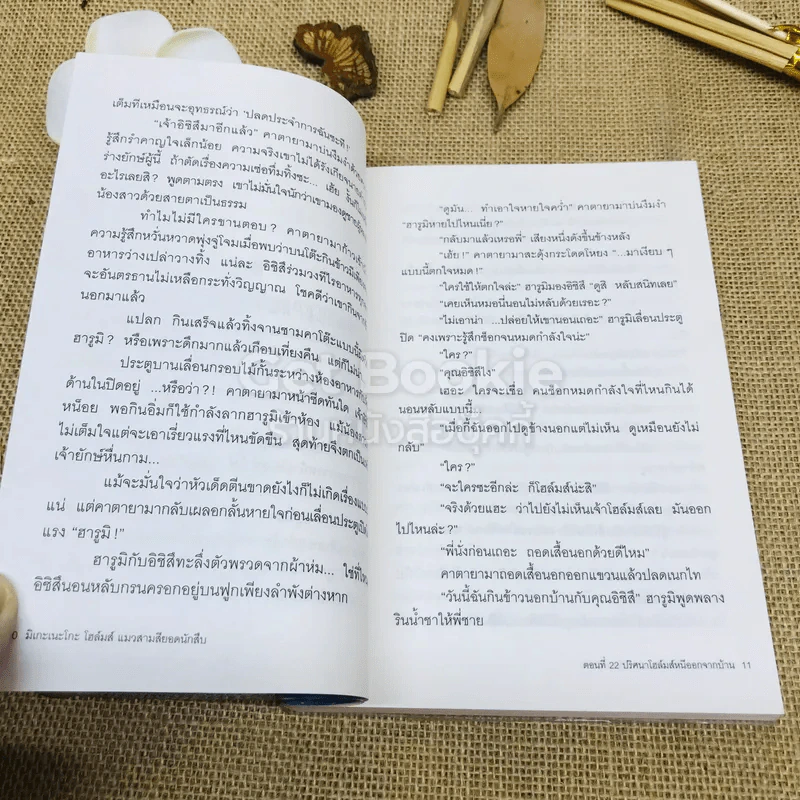 เต็มทีเหมือนจะอุทธรณ์ว่า 'ปลดประจำการฉันซะที!'
"เจ้าอิชิสึมาอีกแล้ว" คาตายามาบ่นงึมงำด้วย
รู้สึกรำคาญใจเล็กน้อย ความจริงเขาไม่ได้รังเกียจ
ร่างยักษ์ผู้นี้ ถ้าตัดเรื่องความเซ่อที่มทิ้งซะ... เฮ้ย
อะไรเลยสิ? พูดตามตรง เขาไม่มั่นใจนักว่าเขามอง
น้องสาวด้วยสายตาเป็นธรรม
ทำไมไม่มีใครขานตอบ? คาตายามาก้าว
ความรู้สึกหวั่นหวาดพุ่งจู่โจมเมื่อพบว่าบนโต๊ะกินข้าว
อาหารว่างเปล่าวางทิ้ง แน่ละ อิชิสึร่วมวงทีไรอาหาร
จะอันตรธานไม่เหลือกระทั่งวิญญาณ โชคดีว่าเขากิน
นอกมาแล้ว
แปลก กินเสร็จแล้วทิ้งจานชามคาโต๊ะแบบนี้
ฮารูมิ? หรือเพราะดึกมากแล้วเกือบเที่ยงคืน แต่ก็ไม่น่า
ประตูบานเลื่อนกรอบไม้กั้นระหว่างห้องอาหาร
ด้านในปิดอยู่ ...หรือว่า?! คาตายามาหน้าซีดทันใด
หน็อย พอกินอิ่มก็ใช้กำลังลากฮารูมิเข้าห้อง แม้น้อง
ไม่เต็มใจแต่จะเอาเรี่ยวแรงที่ไหนขัดขืน สุดท้ายจึงตกเป็น
เจ้ายักษ์หื่นกาม...
แม้จะมั่นใจว่าหัวเด็ดตีนขาดยังไงก็ไม่เกิดเรื่อง
แน่ แต่คาตายามากลับเผลอกลั้นหายใจก่อนเลื่อนประตู
แรง "ฮารูมิ!"
ฮารูมิกับอิชิสึทะลึ่งตัวพรวดจากผ้าห่ม... ใช่ที่ไหน
อิชิสึนอนหลับกรนครอกอยู่บนฟูกเพียงลำพังต่างหาก
0 มิเกะเนะโกะ โฮล์มส์ แมวสามสียอดนักสืบ
"ดูมัน... ทำเอาใจหายใจคว่ำ" คาตายามาบ่นงึมงำ
"ฮารูมิหายไปไหนเนี่ย?"
"กลับมาแล้วเหรอพี่" เสียงหนึ่งดังขึ้นข้างหลัง
"เฮ้ย!" คาตายามาสะดุ้งกระโดดโหยง "...มาเงียบ ๆ
แบบนี้ตกใจหมด!"
"ใครใช้ให้ตกใจล่ะ" ฮารูมิมองอิชิสึ "ดูสิ หลับสนิทเลย"
"เคยเห็นหมอนี่นอนไม่หลับด้วยเรอะ?"
"ไม่เอาน่า ...ปล่อยให้เขานอนเถอะ" ฮารูมิเลื่อนประตู
ปิด "คงเพราะรู้สึกช็อกจนหมดกำลังใจน่ะ"
"ใคร?"
"คุณอิชิสึไง"
เฮอะ ใครจะเชื่อ คนช็อกหมดกำลังใจที่ไหนกินได้
นอนหลับแบบนี้...
"เมื่อกี้ฉันออกไปดูข้างนอกแต่ไม่เห็น ดูเหมือนยังไม่
กลับ"
"ใคร?"
"จะใครซะอีกล่ะ ก็โฮล์มส์น่ะสิ"
"จริงด้วยแฮะ ว่าไปยังไม่เห็นเจ้าโฮล์มส์เลย มันออก
ไปไหนล่ะ?"
"พี่นั่งก่อนเถอะ ถอดเสื้อนอกด้วยดีไหม"
คาตายามาถอดเสื้อนอกออกแขวนแล้วปลดเนกไท
"วันนี้ฉันกินข้าวนอกบ้านกับคุณอิชิสึ" ฮารูมิพูดพลาง
รินน้ำชาให้พี่ชาย
ตอนที่ 22 ปริศนาโฮล์มส์หนีออกจากบ้าน 11
Get Bookie
ร้านหนังสือบุ๊คกี้